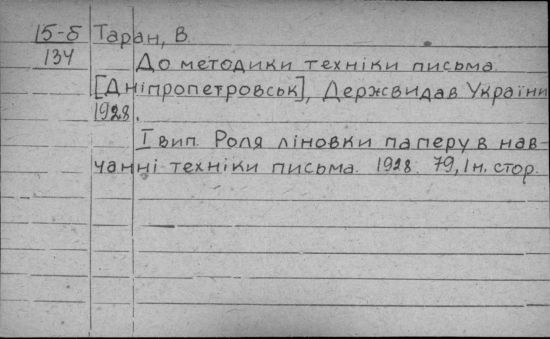 15-б Таран, В.
134
До методики техніки письма.
[Дніпропетровськ], Держвидав України
1928.
І вип. Роля ліновки паперу в нав-
чанні техніки письма. 1928. 79, 1 н. стор.